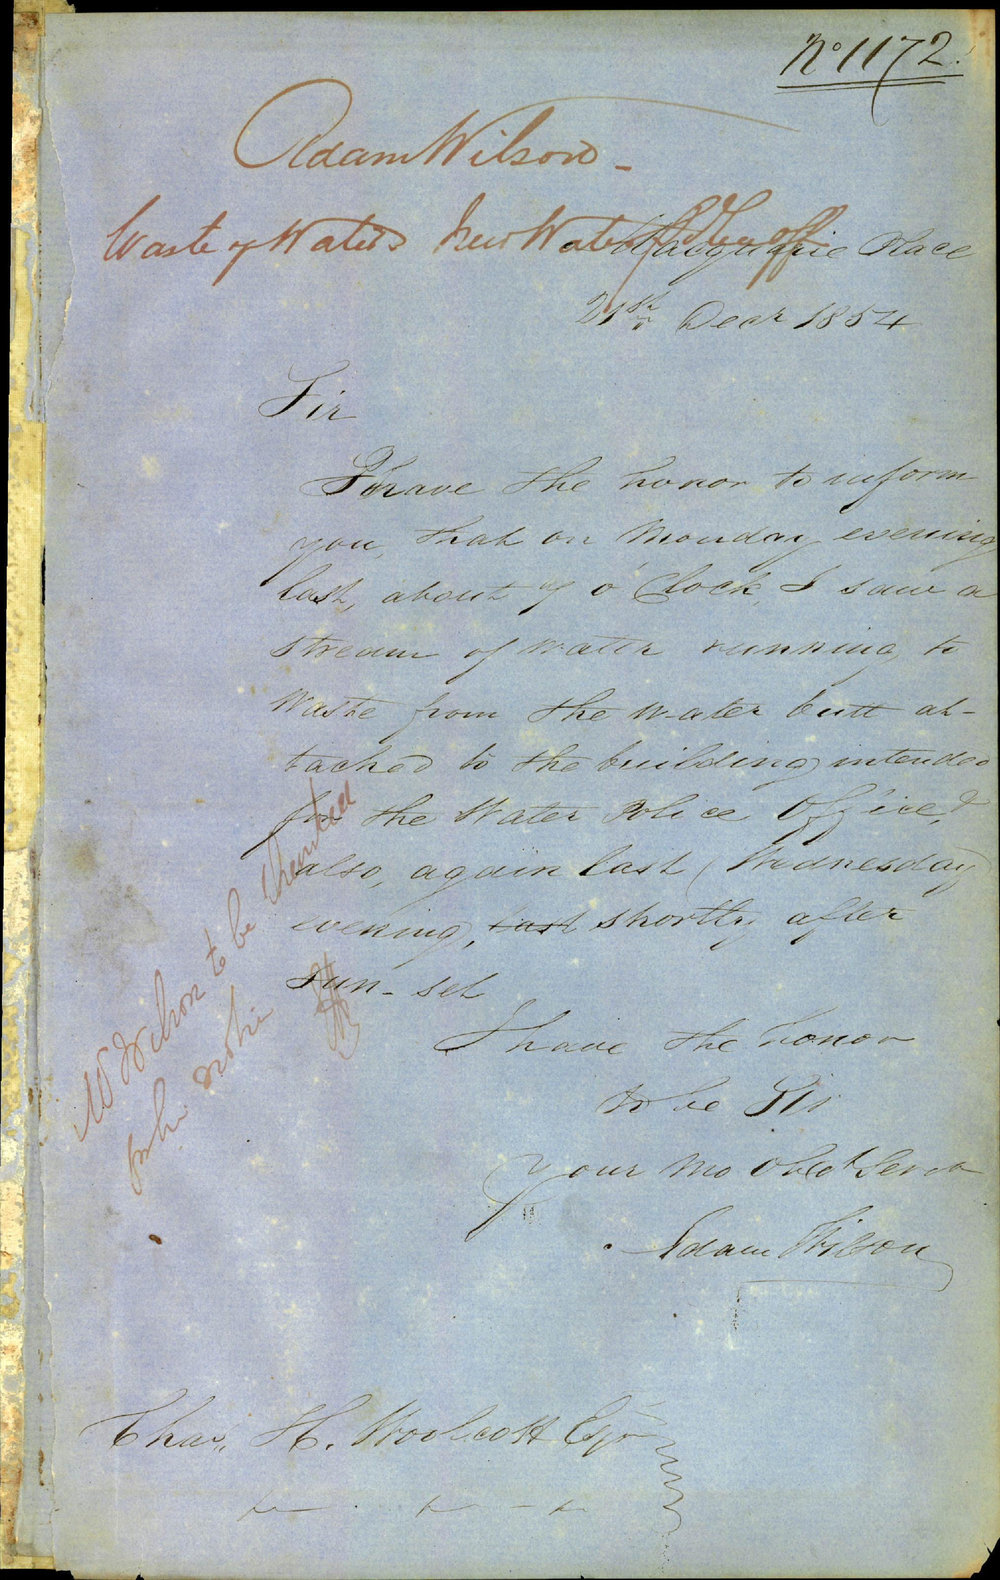 No 1172.
Adam Wilson -
Waste of Water New Water Police Off
Macquarie Place
21st Decr 1854
Sir
I have the honor to inform
you, that on Monday evening
last, about 7 o'Clock, I saw a
stream of Water running to
Waste from the Water butt at-
tached to the building intended
for the Water Police Office,
also, again last Wednesday
evening, last shortly after
sun-set
I have the honor
to be Sir
your mo Obedt Servt
Adam Wilson
Mr Wilson to be thanked
for his notice
Chas. H. Woolcott Esqr